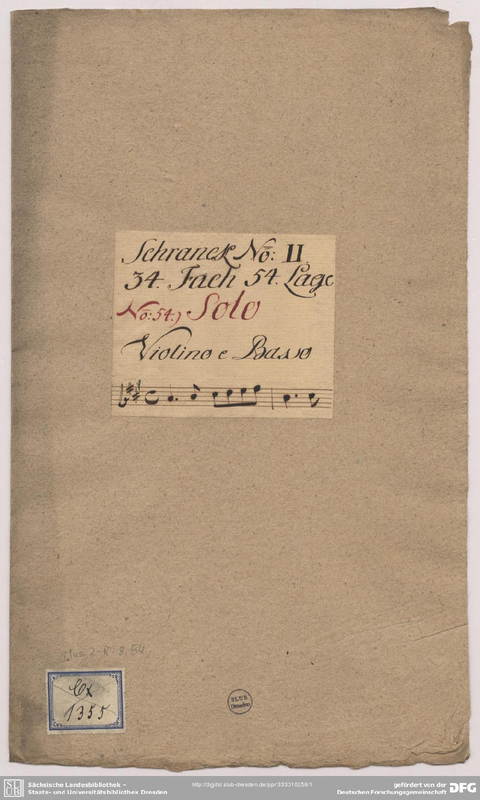 Schranck No: II
34. Fach 54. Lage
No: 54.) Solo
Violino e Basso
Mus. 2-R-8,54
Cx
1355
SLUB
Dresden
Sächsische Landesbibliothek –
Staats- und Universitätsbibliothek Dresden
gefördert von der
Deutschen Forschungsgemeinschaft
DFG